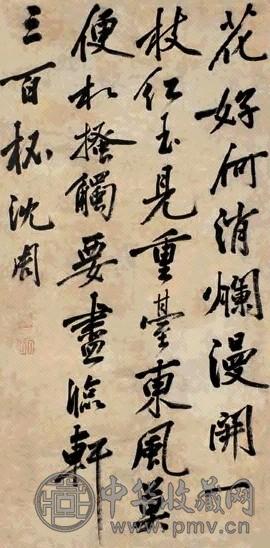 花好何消爛漫開一
枝紅玉見重臺東風莫
便相撩觸要盡臨軒
三百杯沈周
中华收藏网
www.pmv.cn